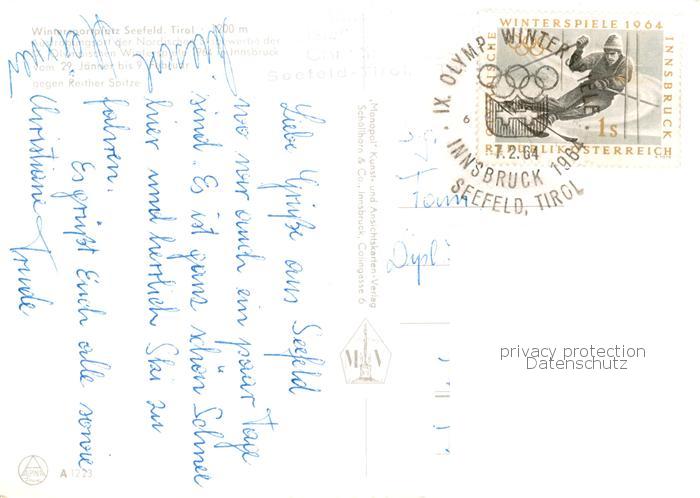 Wintersportplatz Seefeld. Tirol - 1200 m
vom 29. Jänner bis 9. Februar
gegen Reither Spitze
Seefeld-Tirol
Liebe Grüße aus Seefeld
wo wir auch ein paar Tage
sind. Es ist ganz schön Schnee
hier und herrlich Ski zu
fahren.
Es grüßt Euch alle sowie
Christiane Trude
"Monopol" Kunst- und Ansichtskarten-Verlag
Schöllhorn & Co., Innsbruck, Colingasse 6
Fam
Dipl
WINTERSPIELE 1964
INNSBRUCK
1s
REPUBLIK ÖSTERREICH
IX. OLYMP. WINTER
7.2.64
INNSBRUCK 1964
SEEFELD, TIROL
6
privacy protection
Datenschutz
ALPINA
A 1223